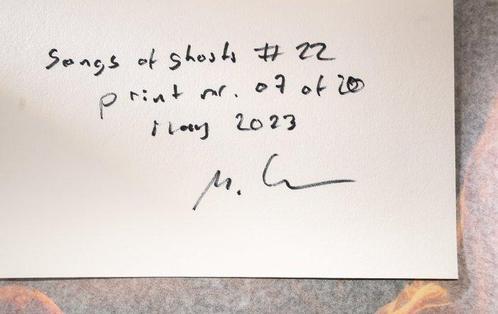 Songs of ghosts # 22
print nr. 07 of 20
May 2023
M.